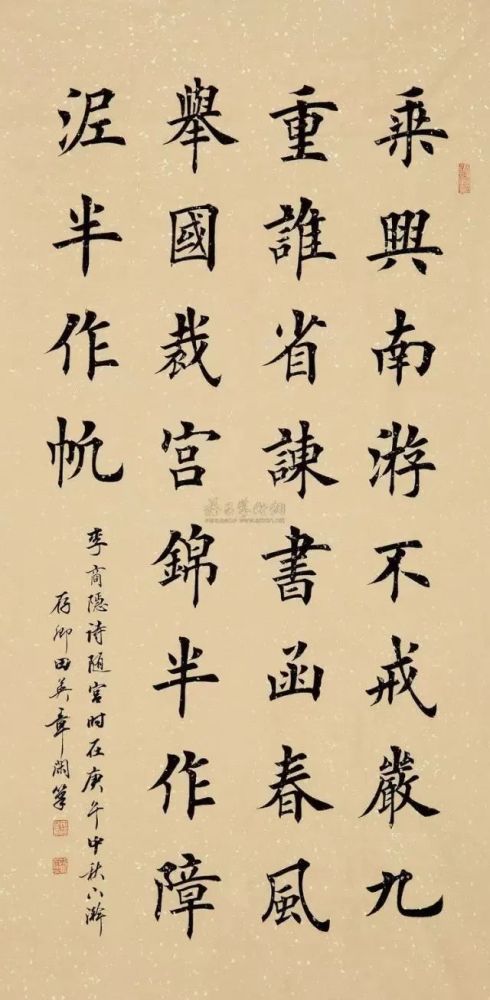 乘興南游不戒嚴九
重誰省諫書函春風
舉國裁宮錦半作障
泥半作帆
李商隱诗隨宫时在庚午中秋
存卿田英章閑筆